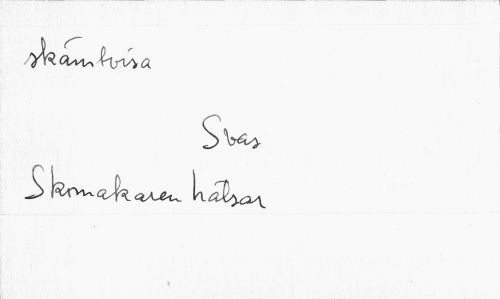 skämtvisa
Svas
Skomakaren hälsar